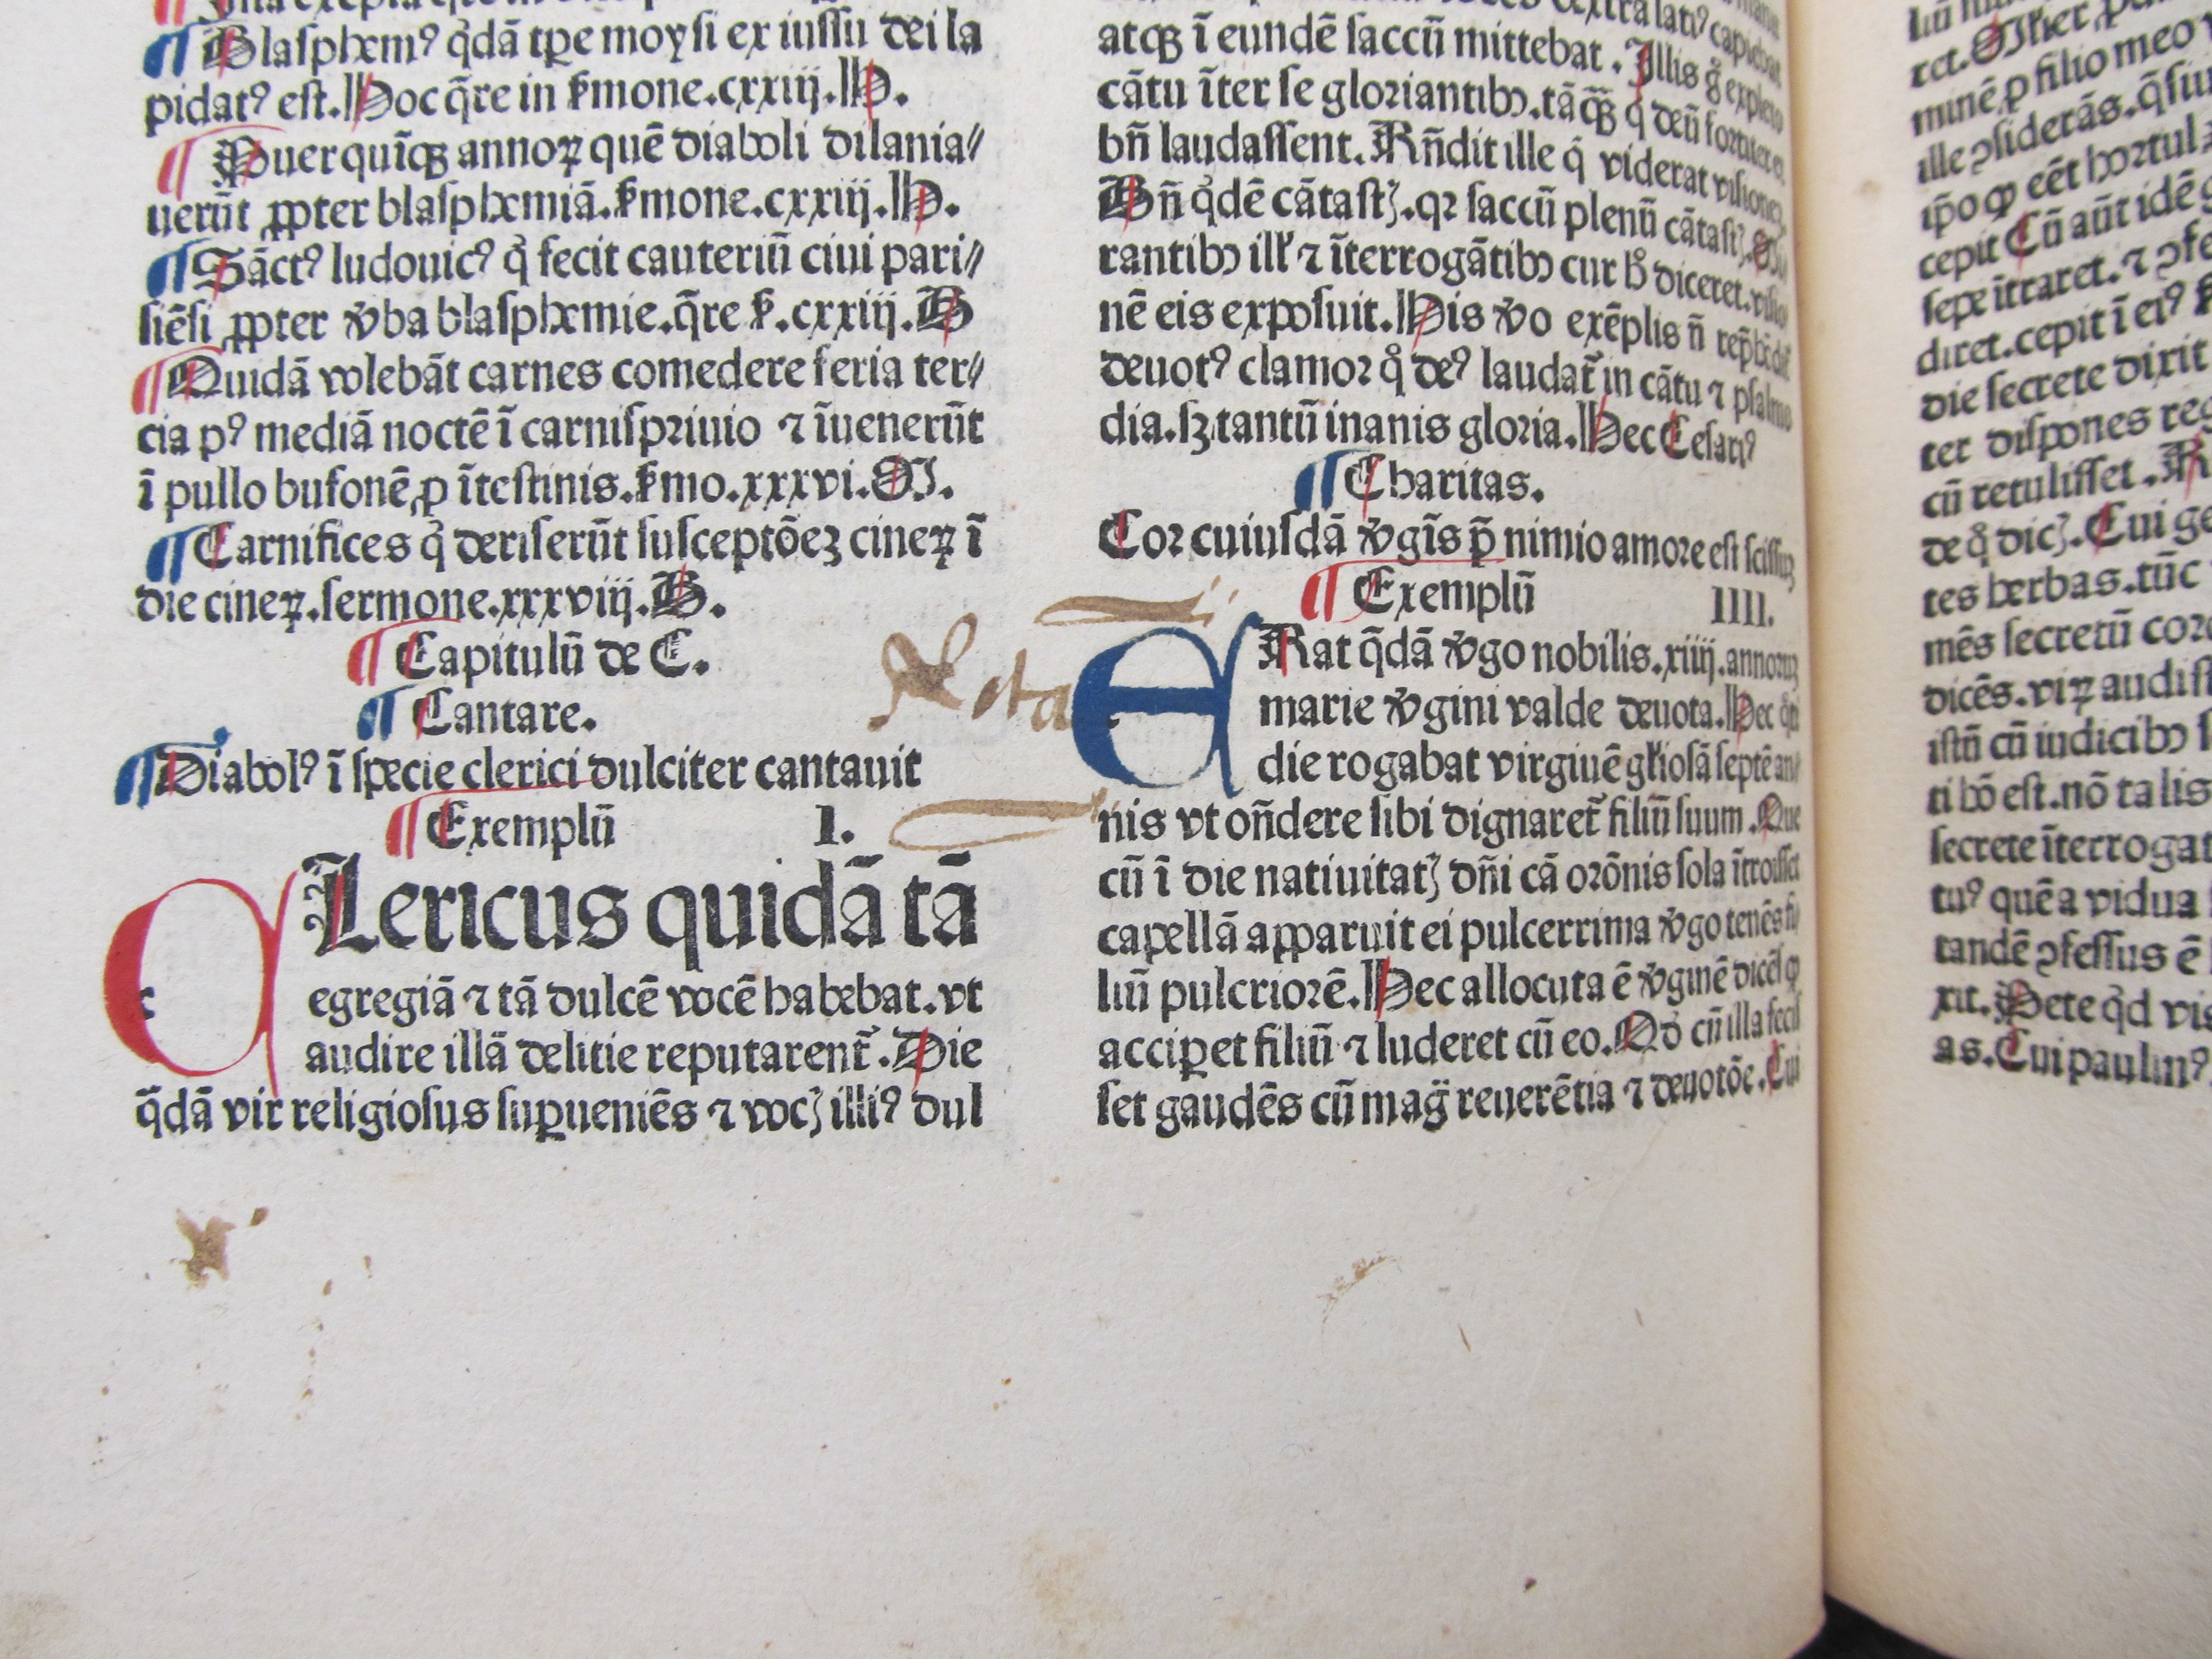 ¶ Blasphemꝰ q̇dā tꝑe moysi ex iussu dei la
pidatꝰ est. Hoc q̄re in ẜmone. cxxiij. H.
¶ Puer quīqꝫ annoꝝ quē diaboli dilania//
uerūt ꝓpter blasphemiā. ẜmone. cxxiij. H.
¶ Sāctꝰ ludouicꝰ q̇ fecit cauteriū ciui pari//
siēsi ꝓpter v̓ba blasphemie. q̄re ẜ. cxxiij. B
¶ Quidā volebāt carnes comedere feria ter//
cia pꝰ mediā noctē ī carnispriuio ⁊ īuenerūt
ī pullo bufonē ꝓ ītestinis. ẜmo. xxxvi. M.
¶ Carnifices q̇ deriserūt susceptōeꝫ cineꝝ ī
die cineꝝ. sermone. xxxviij. B.
¶ Capitulū de C.
¶ Cantare.
¶ Diabolꝰ ī specie clerici dulciter cantauit
¶ Exemplū I.
CLericus quidā tā
egregiā ⁊ tā dulcē vocē habebat. vt
audire illā delitie reputarent᷑. Die
q̄dā vir religiosus suꝑueniēs ⁊ vocꝫ illiꝰ dul
atqꝫ ī eundē saccū mittebat. Illis g̊ expleto
cātu īter se gloriantibꝫ. tāqꝫ̄ q̇ deū fortiter et
bn̄ laudassent. Rn̄dit ille q̇ viderat visioneꝫ
Bn̄ q̇dē cātastꝫ. qꝛ saccū plenū cātastꝫ. Mi
rantibꝫ ill̓ ⁊ īterrogātibꝫ cur h̊ diceret. visio
nē eis exposuit. His v̓o exēplis n̄
deuotꝰ clamor q̊ deꝰ laudat᷑ in cātu ⁊ psalmo
dia. sꝫ tantū inanis gloria. Hec Cesariꝰ
¶ Charitas.
Cor cuiusdā v̓gīs p̄ nimio amore est scissuꝫ
¶ Exemplū IIII.
Nota
ERat q̄dā v̓go nobilis. xiiij. annoruꝫ
marie v̓gini valde deuota. Hec
die rogabat virginē gl̓iosā septē an//
nis vt oñdere sibi dignaret᷑ filiū suum. Que
cū ī die natiuitatꝫ dn̄i cā orōnis sola ītroisset
capellā apparuit ei pulcerrima v̓go tenēs fi//
liū pulcriorē. Hec allocuta ē v̓ginē dicēs ꝙ
acciꝑet filiū ⁊ luderet cū eo. Qd̓ cū illa fecis
set gaudēs cū mag̈ reuerētia ⁊ deuotōe. Cui
minē ꝓ filio meo
ille ꝯsiderās.
ip̄o ꝙ eēt
cepit Cū aūt idē
sepe ītraret. ⁊
diret. cepit ī eiꝰ
die secrete dixit
ter dispones
cū retulisset.
de q̊ dicꝫ. Cui
tes herbas. tūc
mēs secretū
dicēs. viꝝ
istū cū iudicibꝫ
ti bō est. nō talis
secrete īterrogat
tuꝰ quē a vidua
tandē ꝯfessus ē
xit. Pete q̇d vis
as. Cui paulinꝰ